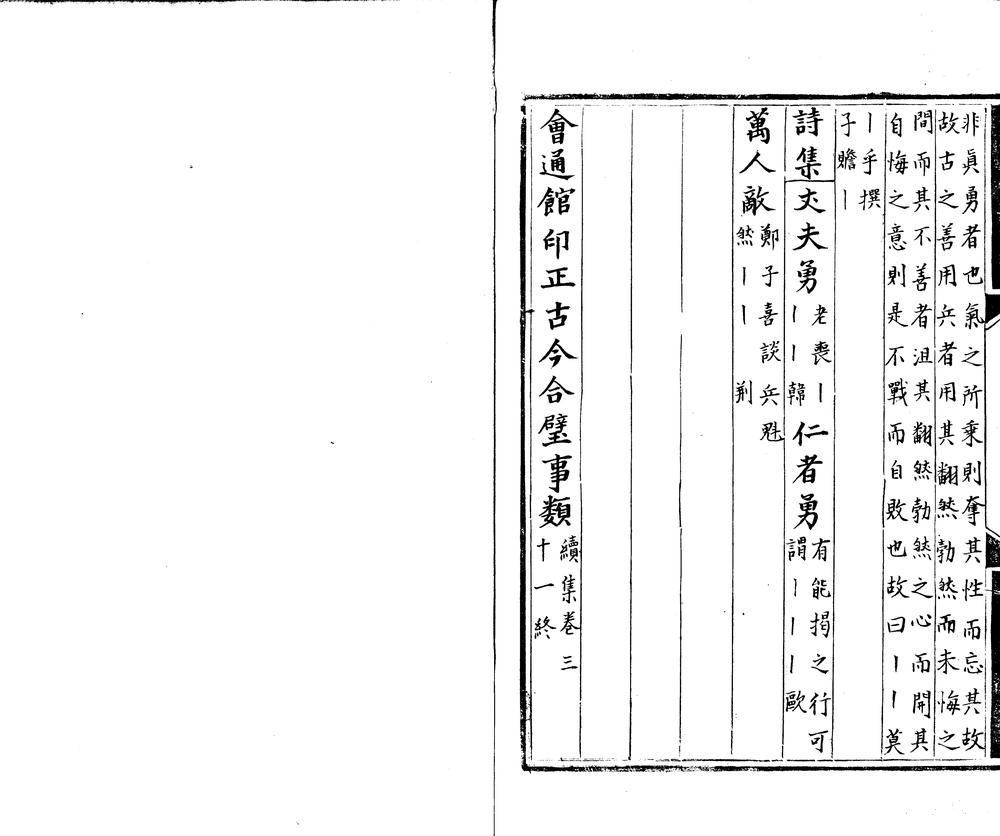 非眞勇者也氣之所乗則奪其性而忘其故
故古之善用兵者用其翻然勃然而未悔之
間而其不善者沮其翻然勃然之心而開其
自悔之意則是不戰而自敗也故曰丨丨莫
丨乎撰
子贍丨
詩集丈夫勇老喪丨丨丨韓仁者勇有能揭之行可謂丨丨丨歐
萬人敵鄭子喜談兵魁然丨丨荆
會通館印正古今合璧事類續集卷三十一終